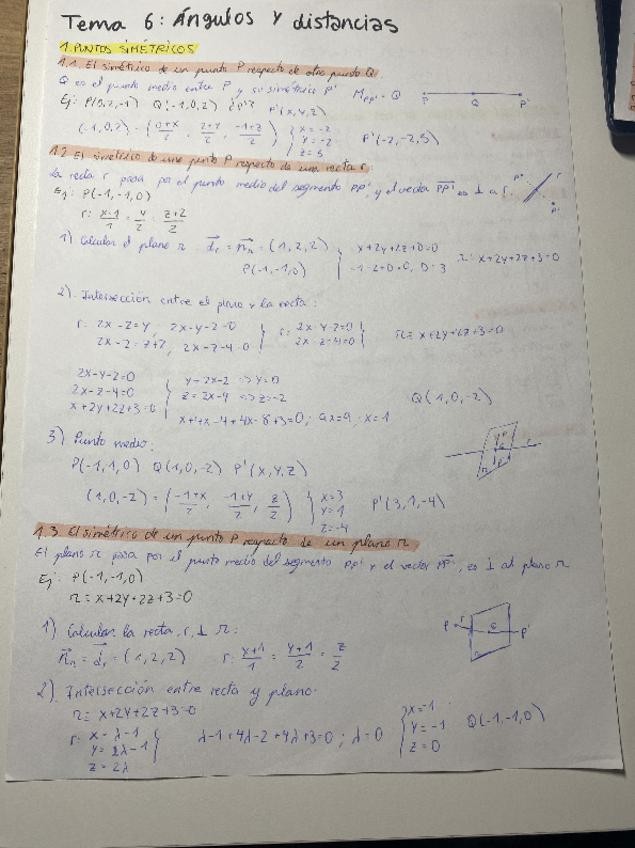 Tema 6: Ángulos y distancias
1. PUNTOS SIMÉTRICOS
1.1. El simétrico de un punto P respecto de otro punto Q
Q es el punto medio entre P y su simétrico P' M_PP' = Q P Q P'
Ej: P(0,2,-1) Q(-1,0,2) ¿P'? P'(x,y,z)
(-1,0,2) = (0+x/2, 2+y/2, -1+z/2) { x=-2 y=-2 z=5 P'(-2,-2,5)
1.2 El simétrico de un punto P respecto de una recta r:
La recta r pasa por el punto medio del segmento PP', y el vector PP' es ⊥ a r. P r P'
Ej: P(-1,-1,0)
r: x-1/1 = y/2 = z+2/2
1) Calcular el plano π: d_r = n_π = (1,2,2) { x+2y+2z+D=0 π: x+2y+2z+3=0
P(-1,-1,0) -1-2+D=0, D=3
2). Intersección entre el plano y la recta:
r: 2x-2=y, 2x-y-2=0 } r: 2x-y-2=0 } π≡x+2y+2z+3=0
2x-2=z+2, 2x-z-4=0 2x-z-4=0
2x-y-2=0 { y=2x-2 => y=0
2x-z-4=0 z=2x-4 => z=-2 Q(1,0,-2)
x+2y+2z+3=0 x+4x-4+4x-8+3=0; 9x=9, x=1
3) Punto medio:
P(-1,-1,0) Q(1,0,-2) P'(x,y,z)
(1,0,-2) = (-1+x/2, -1+y/2, z/2) { x=3 y=1 z=-4 P'(3,1,-4)
1.3 El simétrico de un punto P respecto de un plano π
El plano π pasa por el punto medio del segmento PP' y el vector PP', es ⊥ al plano π
Ej: P(-1,-1,0)
π≡x+2y+2z+3=0
1) Calcular la recta, r, ⊥ π: P r Q P'
n_π = d_r = (1,2,2) r: x+1/1 = y+1/2 = z/2
2) Intersección entre recta y plano.
π≡x+2y+2z+3=0
r: x=λ-1 y=2λ-1 z=2λ } λ-1+4λ-2+4λ+3=0; λ=0 { x=-1 y=-1 z=0 Q(-1,-1,0)